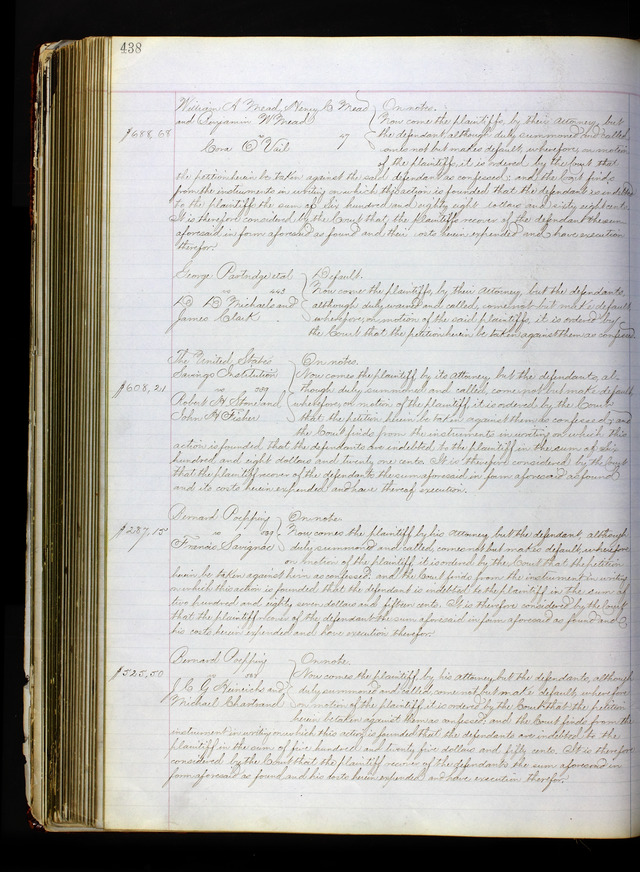 438
William A Mead, Henry C Mead } On notes.
and Benjamin W Mead Now come the plaintiffs by their attorney, but
$688,68 vs 47 the defendant although duly summoned and called
Cora O Vail comes not but makes default, wherefore, on motion
of the plaintiffs, it is ordered by the Court that
the petition herein be taken against the said defendant as confessed; and the Court finds
from the instruments in writing on which this action is founded that the defendant is indebted
to the plaintiffs in the sum of Six hundred and eighty eight dollars and sixty eight cents.
It is therefore considered by the Court that the plaintiffs recover of the defendant the sum
aforesaid in form aforesaid as found and their costs herein expended and have execution
therefor.
George Partridge et al } Default.
vs 443 Now come the plaintiffs by their attorney, but the defendants,
D D Michaels and although duly warned and called, come not but make default
James Clark wherefore, on motion of the said plaintiffs, it is ordered by
the Court that the petition herein be taken against them as confessed
The United States } On notes.
Savings Institution Now comes the plaintiff by its attorney, but the defendants, al-
$608,21 vs though duly summoned and called, come not but make default
Robert H Stone and wherefore, on motion of the plaintiff it is ordered by the Court
John H Fisher that the petition herein be taken against them as confessed; and
the Court finds from the instruments in writing on which this
action is founded, that the defendants are indebted to the plaintiff in the sum of six
hundred and eight dollars and twenty one cents. It is therefore considered by the Court
that the plaintiff recover of the defendants the sum aforesaid in form aforesaid as found
and its costs herein expended and have thereof execution.
Bernard Poepping } On note.
$287,15 vs Now comes the plaintiff by his attorney, but the defendant, although
Francis Savignac duly summoned and called, comes not but makes default, wherefore
on motion of the plaintiff it is ordered by the Court that the petition
herein be taken against him as confessed, and the Court finds from the instrument in writing
on which this action is founded that the defendant is indebted to the plaintiff in the sum of
two hundred and eighty seven dollars and fifteen cents. It is therefore considered by the Court
that the plaintiff recover of the defendant the sum aforesaid in form aforesaid as found and
his costs herein expended and have execution therefor.
Bernard Poepping } On note.
$525,50 vs Now comes the plaintiff by his attorney, but the defendants, although
J C G Heinrichs and duly summoned and called come not but make default, wherefore
Michael Chartrand on motion of the plaintiff it is ordered by the Court that the petition
herein be taken against them as confessed and the Court finds from the
instrument in writing on which this action is founded that the defendants are indebted to the
plaintiff in the sum of five hundred and twenty five dollars and fifty cents. It is therefore
considered by the Court that the plaintiff recover of the defendants the sum aforesaid in
form aforesaid as found, and his costs herein expended and have execution therefor.